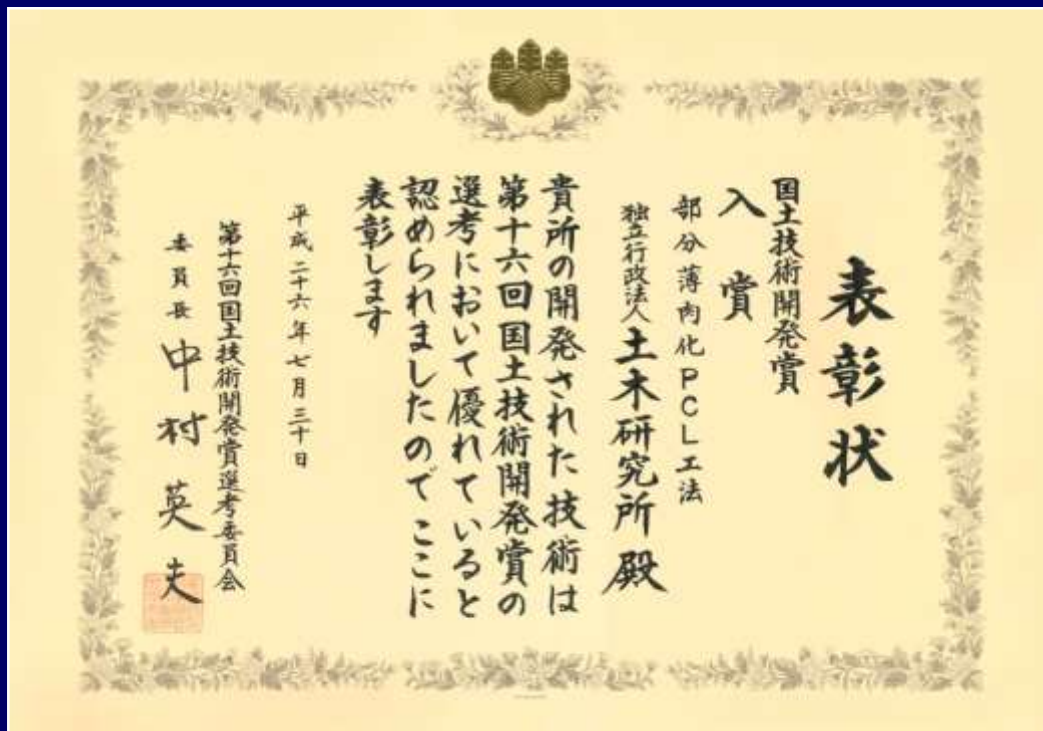 表彰状
国土技術開発賞
入賞
部分薄肉化PCL工法
独立行政法人土木研究所殿
貴所の開発された技術は
第十六回国土技術開発賞の
選考において優れていると
認められましたのでここに
表彰します
平成二十六年七月三十日
第十六回国土技術開発賞選考委員会
委員長中村英夫